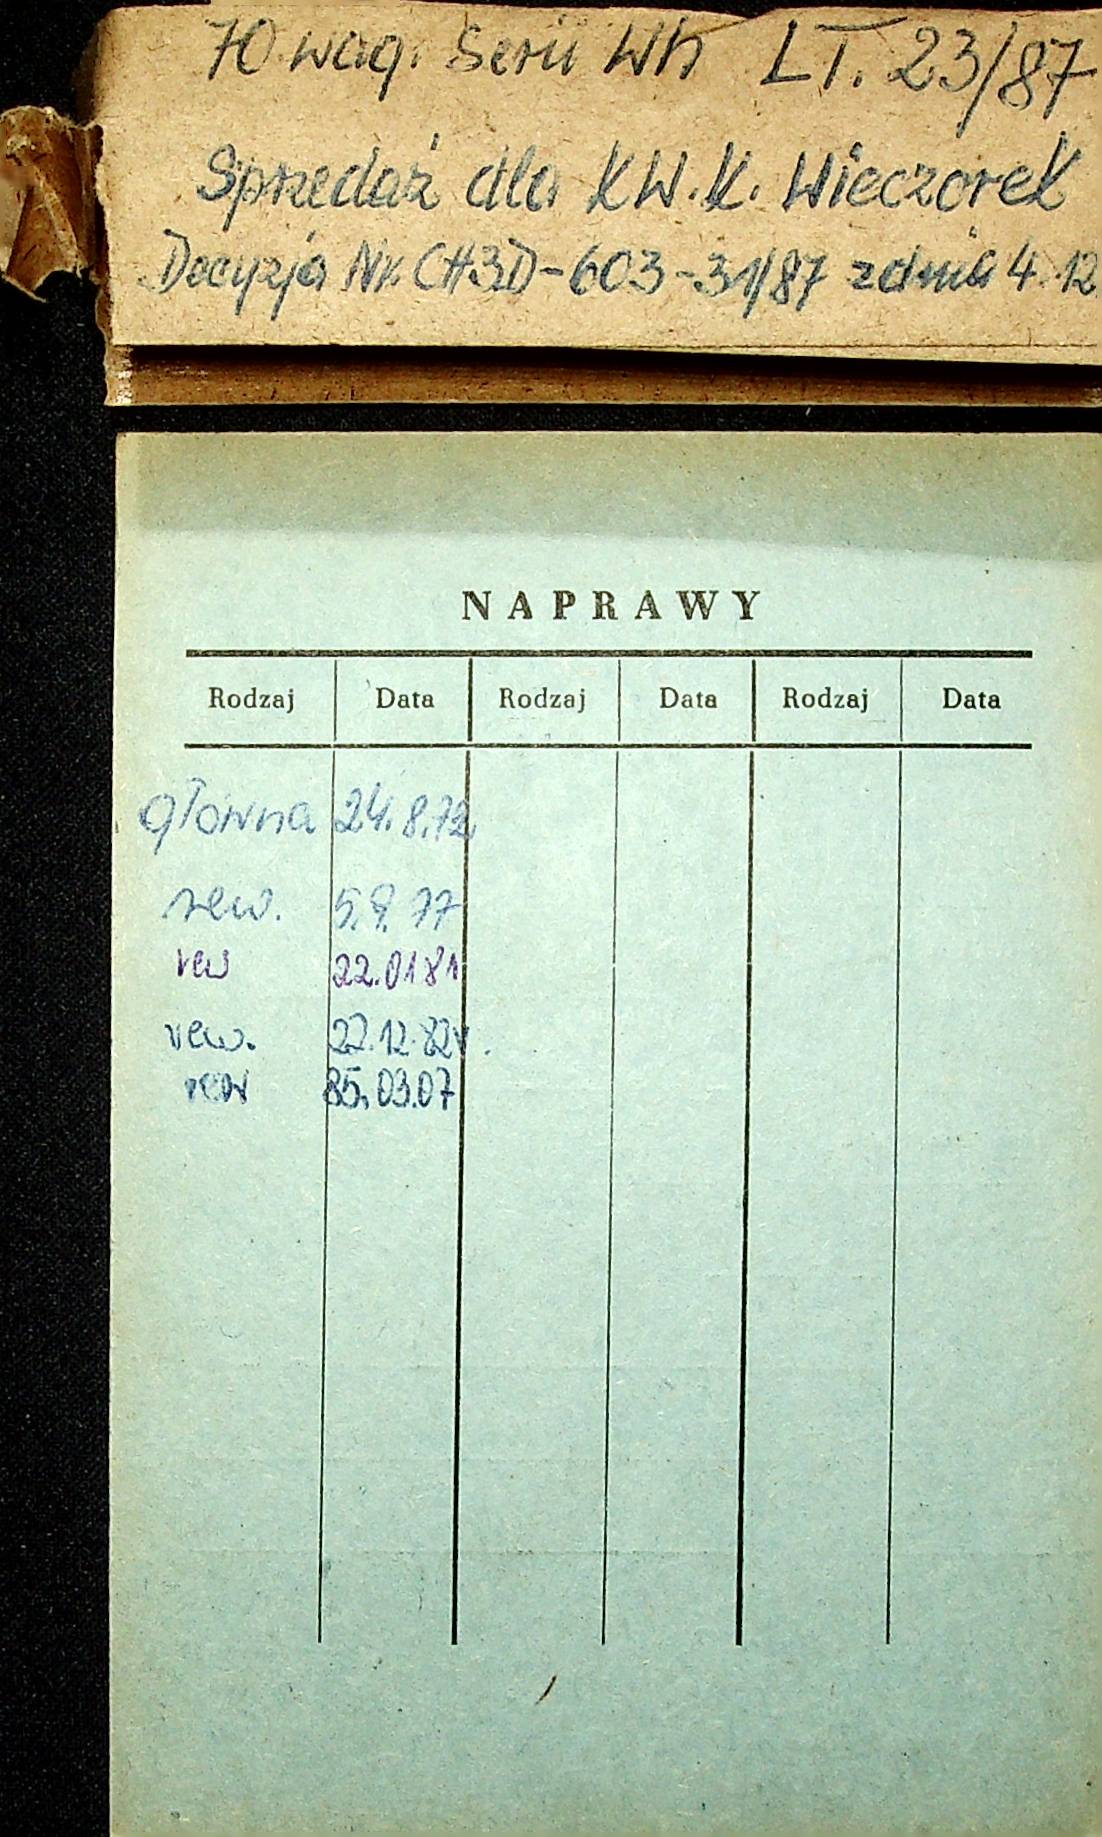 70 wag. Serii Wh LT. 23/87
Sprzedaż dla KW.K. Wieczorek
Decyzja Nr. CH3D-603-31/87 z dnia 4.12
NAPRAWY
Rodzaj Data Rodzaj Data Rodzaj Data
główna 24.8.72
rew. 5.9.77
rew 22.01 81
rew. 22.12.82r.
rew 85.03.07